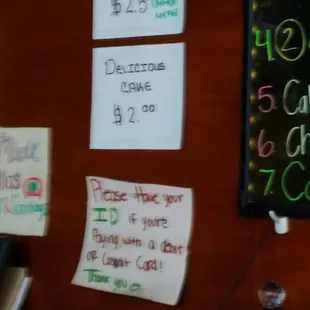 $2.5
DELICIOUS
CAKE
$2.00
Please Have your
ID if you're
Paying with a debit
or Credit Card!
Thank you
4. 2
5. Ca
6. Ch
7. C